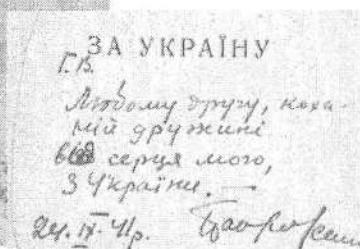 ЗА УКРАЇНУ
Г.В.
Любому другу, коха-
ній дружині
від серця мого,
З України. —
24. IX. 41р.